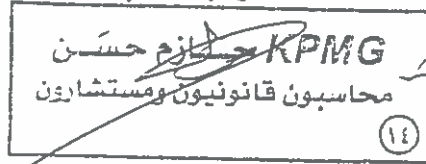 KPMG حازم حسن
محاسبون قانونيون ومستشارون
١٤